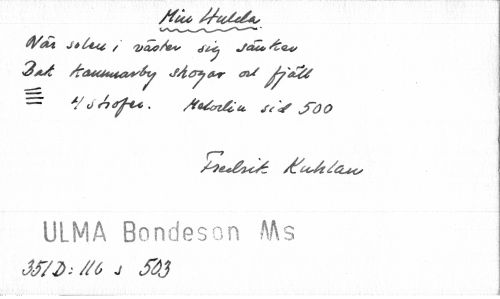 Min Hulda.
När solen i väster sig sänker
Bak Hammarby skogar och fjäll
4 strofer. Melodin sid 500
Fredrik Kuhlau
ULMA Bondeson Ms
351D: 116 s 503